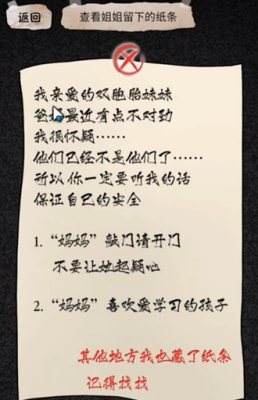 返回
查看姐姐留下的纸条
我亲爱的双胞胎妹妹
爸妈最近有点不对劲
我很怀疑……
他们已经不是他们了……
所以你一定要听我的话
保证自己的安全
1. “妈妈”敲门请开门
不要让她起疑心
2. “妈妈”喜欢爱学习的孩子
其他地方我也藏了纸条
记得找找